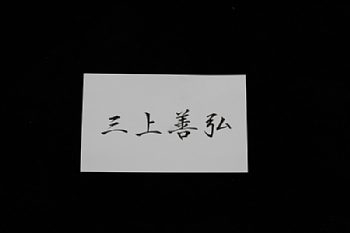 三上善弘